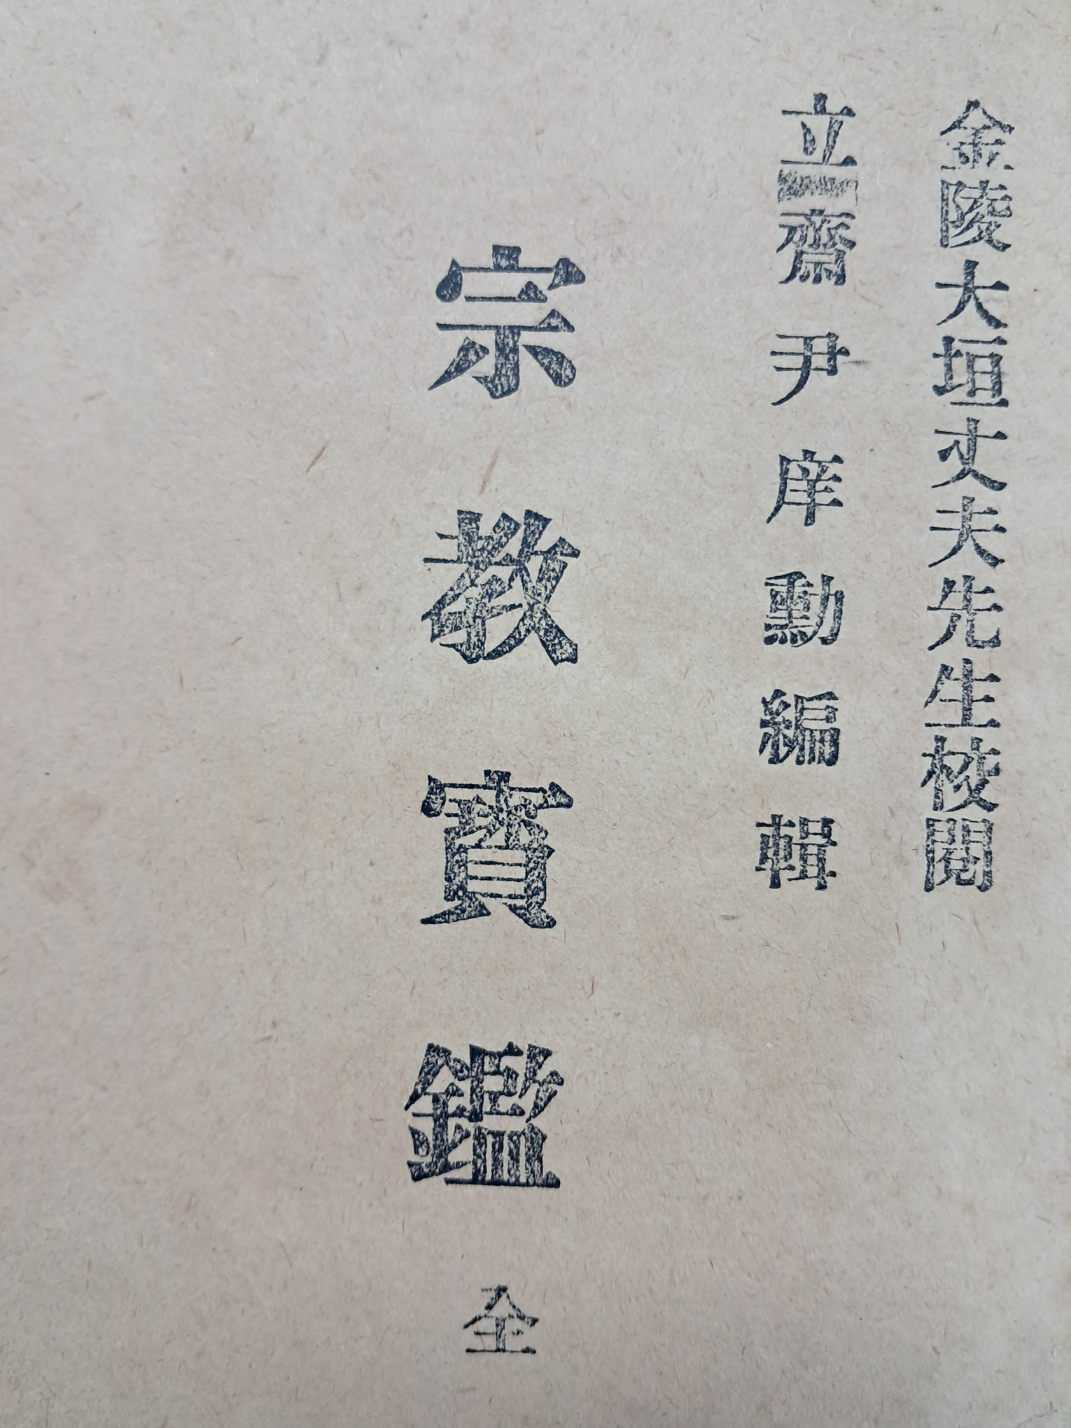 金陵大垣丈夫先生校閱
立齋尹庠勳編輯
宗教寶鑑 全